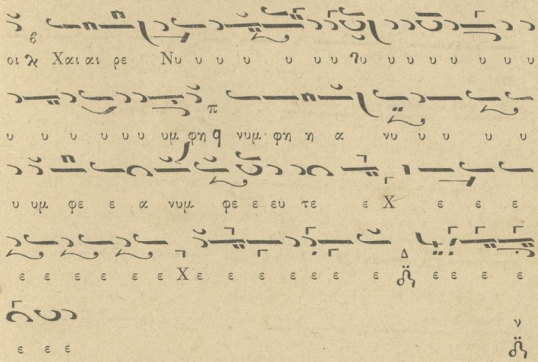 οι Χαι αι ρε Νυ υ υ υ υ υ υ υ υ υ υ υ υ υ υ
υ υ υ υ υ υ υμ φη νυμ φη η α νυ υ υ υ υ
υ υμ φε ε α νυμ φε ε ευ τε ε Χ ε ε ε
ε ε ε ε ε ε Χε ε ε ε ε ε ε ε ε ε ε
ε ε ε